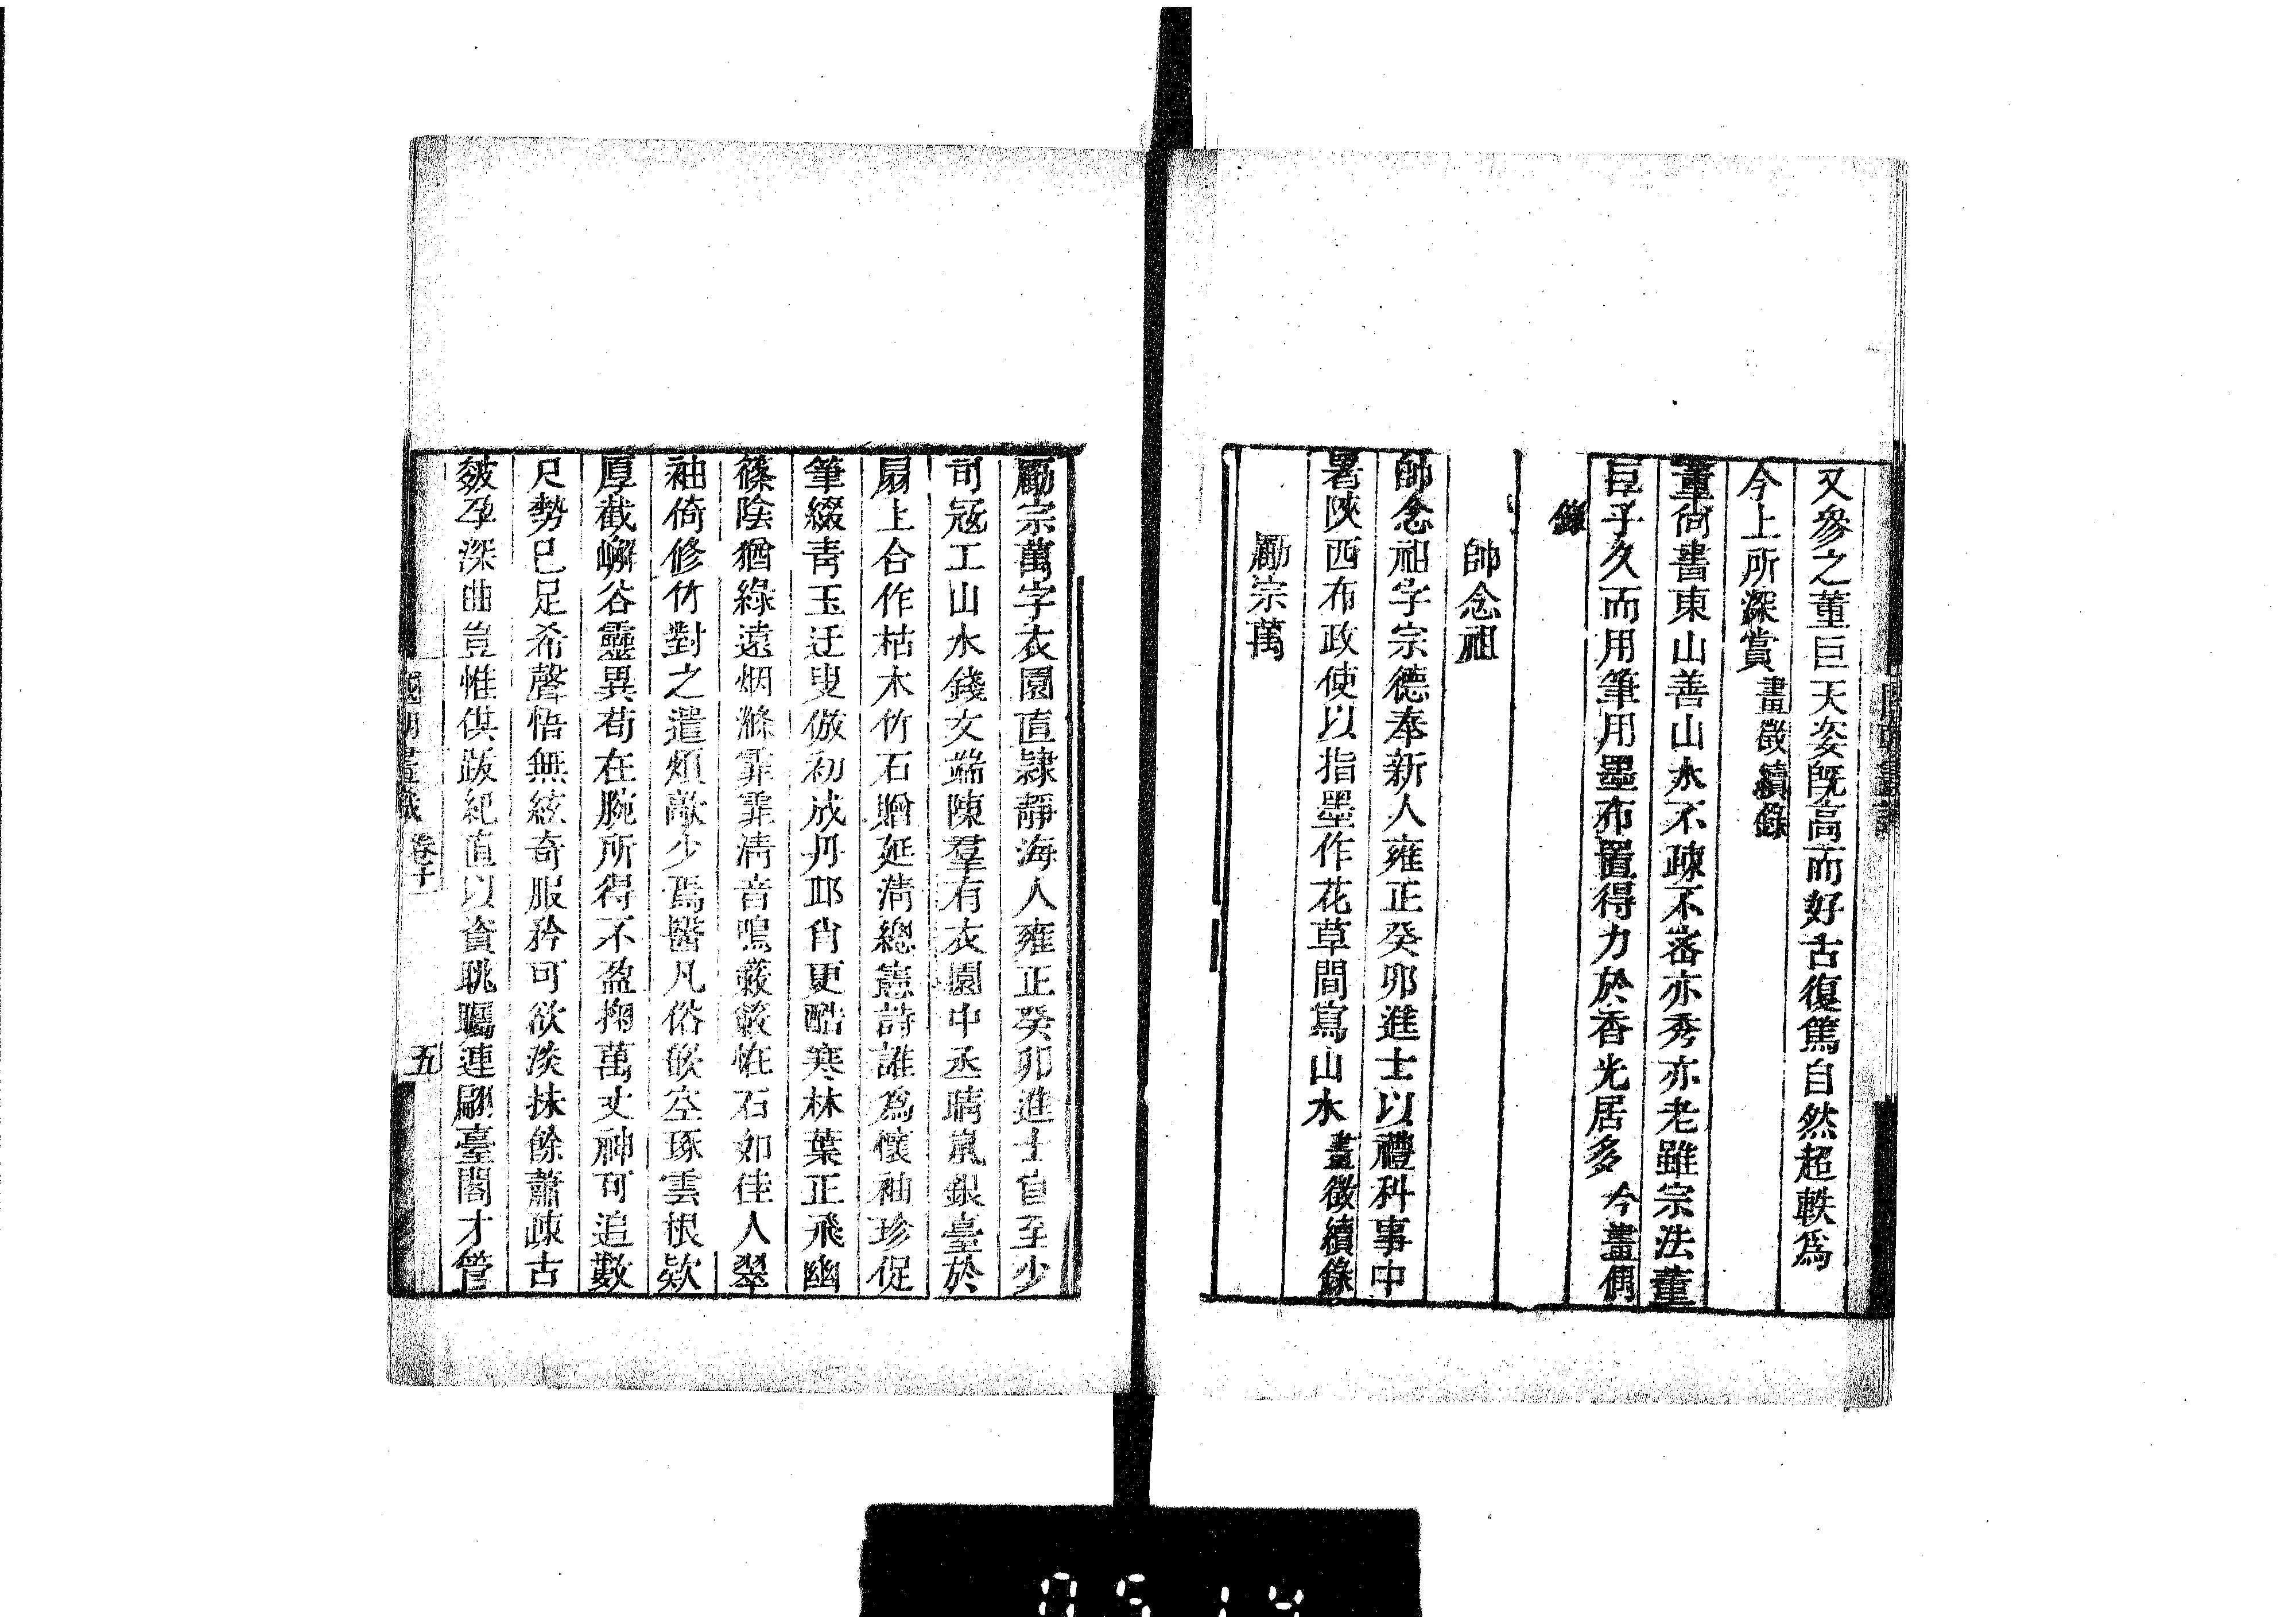 又參之董巨天姿既高而好古復篤自然超軼爲
今上所深賞畫徵續錄
董尚書東山善山水不疎不密亦秀亦老雖宗法董
巨乎久而用筆用墨布置得力於香光居多今畫偶
錄
帥念祖
帥念祖字宗德奉新人雍正癸卯進士以禮科事中
署陝西布政使以指墨作花草間寫山水畫徵續錄
勵宗萬
勵宗萬字衣園直隸靜海人雍正癸卯進士官至少
司寇工山水錢文端陳羣有衣園中丞晴嵐銀臺於
扇上合作枯木竹石贈延淸總憲詩誰爲懷袖珍促
筆綴靑玉迂叟倣初成丹邱肖更酷寒林葉正飛幽
篠陰猶綠遠烟滌霏霏淸音鳴蔌蔌怪石如佳人翠
袖倚修竹對之遣煩敵少焉醫凡俗嵌空琢雲根欵
厚截嶰谷靈異苟在腕所得不盈掬萬丈神可追數
尺勢已足希聲悟無絃奇服矜可欲淡抹餘蕭疎古
皴孕深曲豈惟供跋紀直以資眺矚連翩臺閣才管
國朝畫識 卷十 五